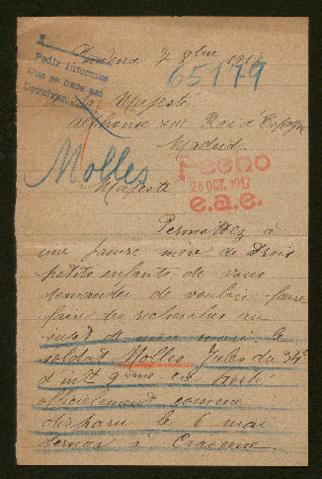 7 8bre 1917
65179
Pedir informes
Que se hace así
Sa Majesté
Alphonse XIII Roi d'Espagne
Madrid
Molles
Pecho
26 OCT. 1917
e.a.e.
Majesté
Permettez à
une pauvre mère de trois
petits enfants de vous
demander de vouloir faire
faire des recherches au
sujet de mon mari le
soldat Molles Jules du 34e
d'inft 9ème cie porté
officiellement comme
disparu le 6 mai
dernier à Craonne